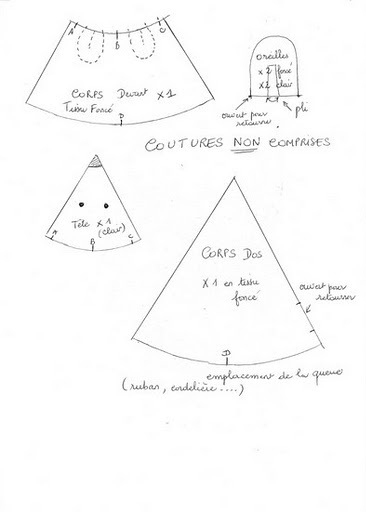 A
1
B
1
C
CORPS Devant x 1
Tissu Foncé
D
oreilles
x 2 foncé
x 2 clair
ouvert pour
retourner
pli
COUTURES NON COMPRISES
Tête x 1
(clair)
A
B
C
CORPS DOS
X 1 en tissu
foncé
ouvert pour
retourner
D
emplacement de la queue
(ruban, cordelière ....)